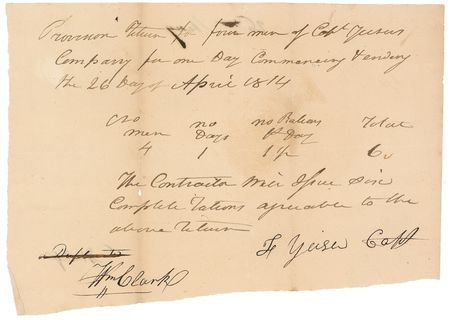 Provision Return for four men of Capt Yeisers
Company for one Day Commencing & ending
the 26 Day of April 1814
No men	no Days	no Rations Pr Day	Total
4	1	1½	6
The Contractor Will Issue Six
Complete Rations agreeable to the
above Return
F Yeiser Capt
Wm Clark